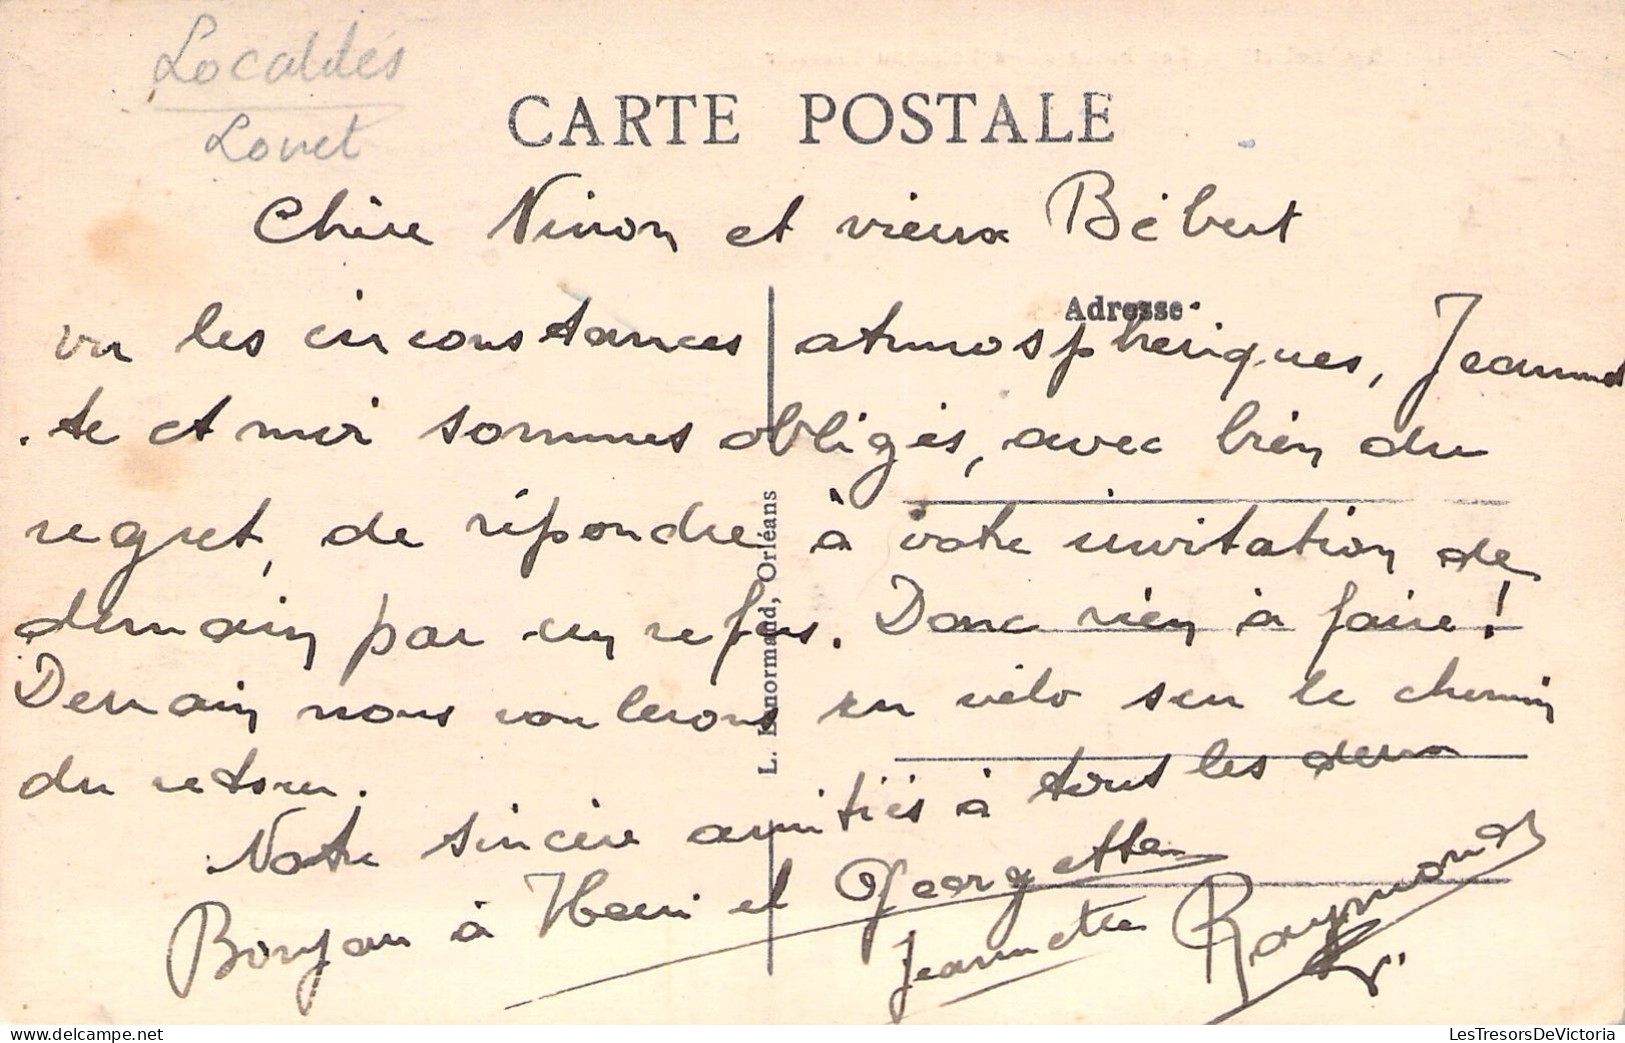 Localités
Loiret
CARTE POSTALE
Chère Ninon et vieux Bébert
Adresse
vu les circonstances atmosphériques, Jeannet
te et moi sommes obligés, avec bien du
regret, de répondre à votre invitation de
demain par un refus. Donc rien à faire !
Demain nous roulerons en vélo sur le chemin
du retour.
Notre sincère amitiés à tous les deux
Bonjour à Henri et Georgette
Jeannette Raymond
L. Lenormand, Orléans
LesTresorsDeVictoria.com